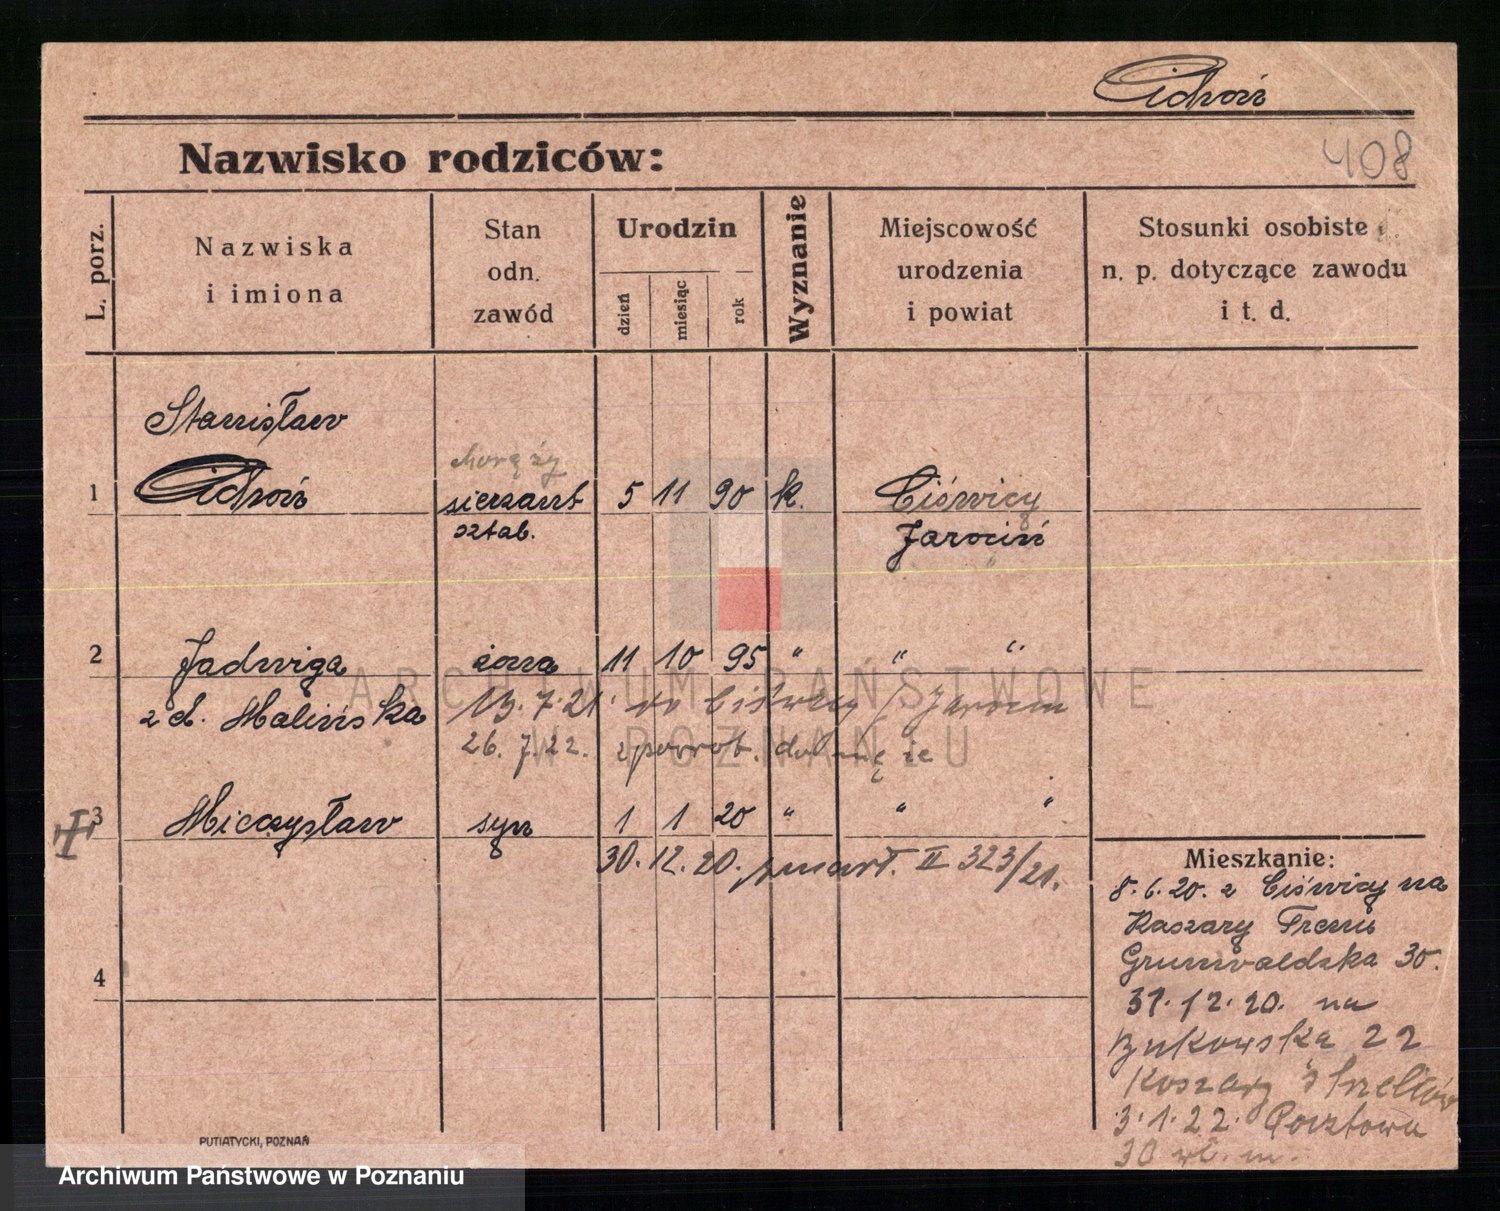 Cichoń
408
Nazwisko rodziców:
L. porz.
Nazwiska
i imiona
Stan
odn.
zawód
Urodzin
dzień
miesiąc
rok
Wyznanie
Miejscowość
urodzenia
i powiat
Stosunki osobiste
n. p. dotyczące zawodu
i t. d.
Stanisław
chorąży
1 Cichoń sierzant 5 11 90 k. Ciświcy
sztab. Jarocin
2 Jadwiga żona 11 10 95 " " "
z d. Malińska 13.7.21. do Ciświcy / Jarocin
26.7.22. zpowrot.
3 Mieczysław syn 1 1 20 " " "
30.12.20. zmarł. II 323/21.
4
Mieszkanie:
8.6.20. z Ciświcy na
Koszary Trenu
Grunwaldzka 30.
31.12.20. na
Bukowska 22
Koszary Strzelców
3.1.22. Pocztowa
30 wł. m.
PUTIATYCKI, POZNAŃ
ARCHIWUM PAŃSTWOWE
W POZNANIU
Archiwum Państwowe w Poznaniu